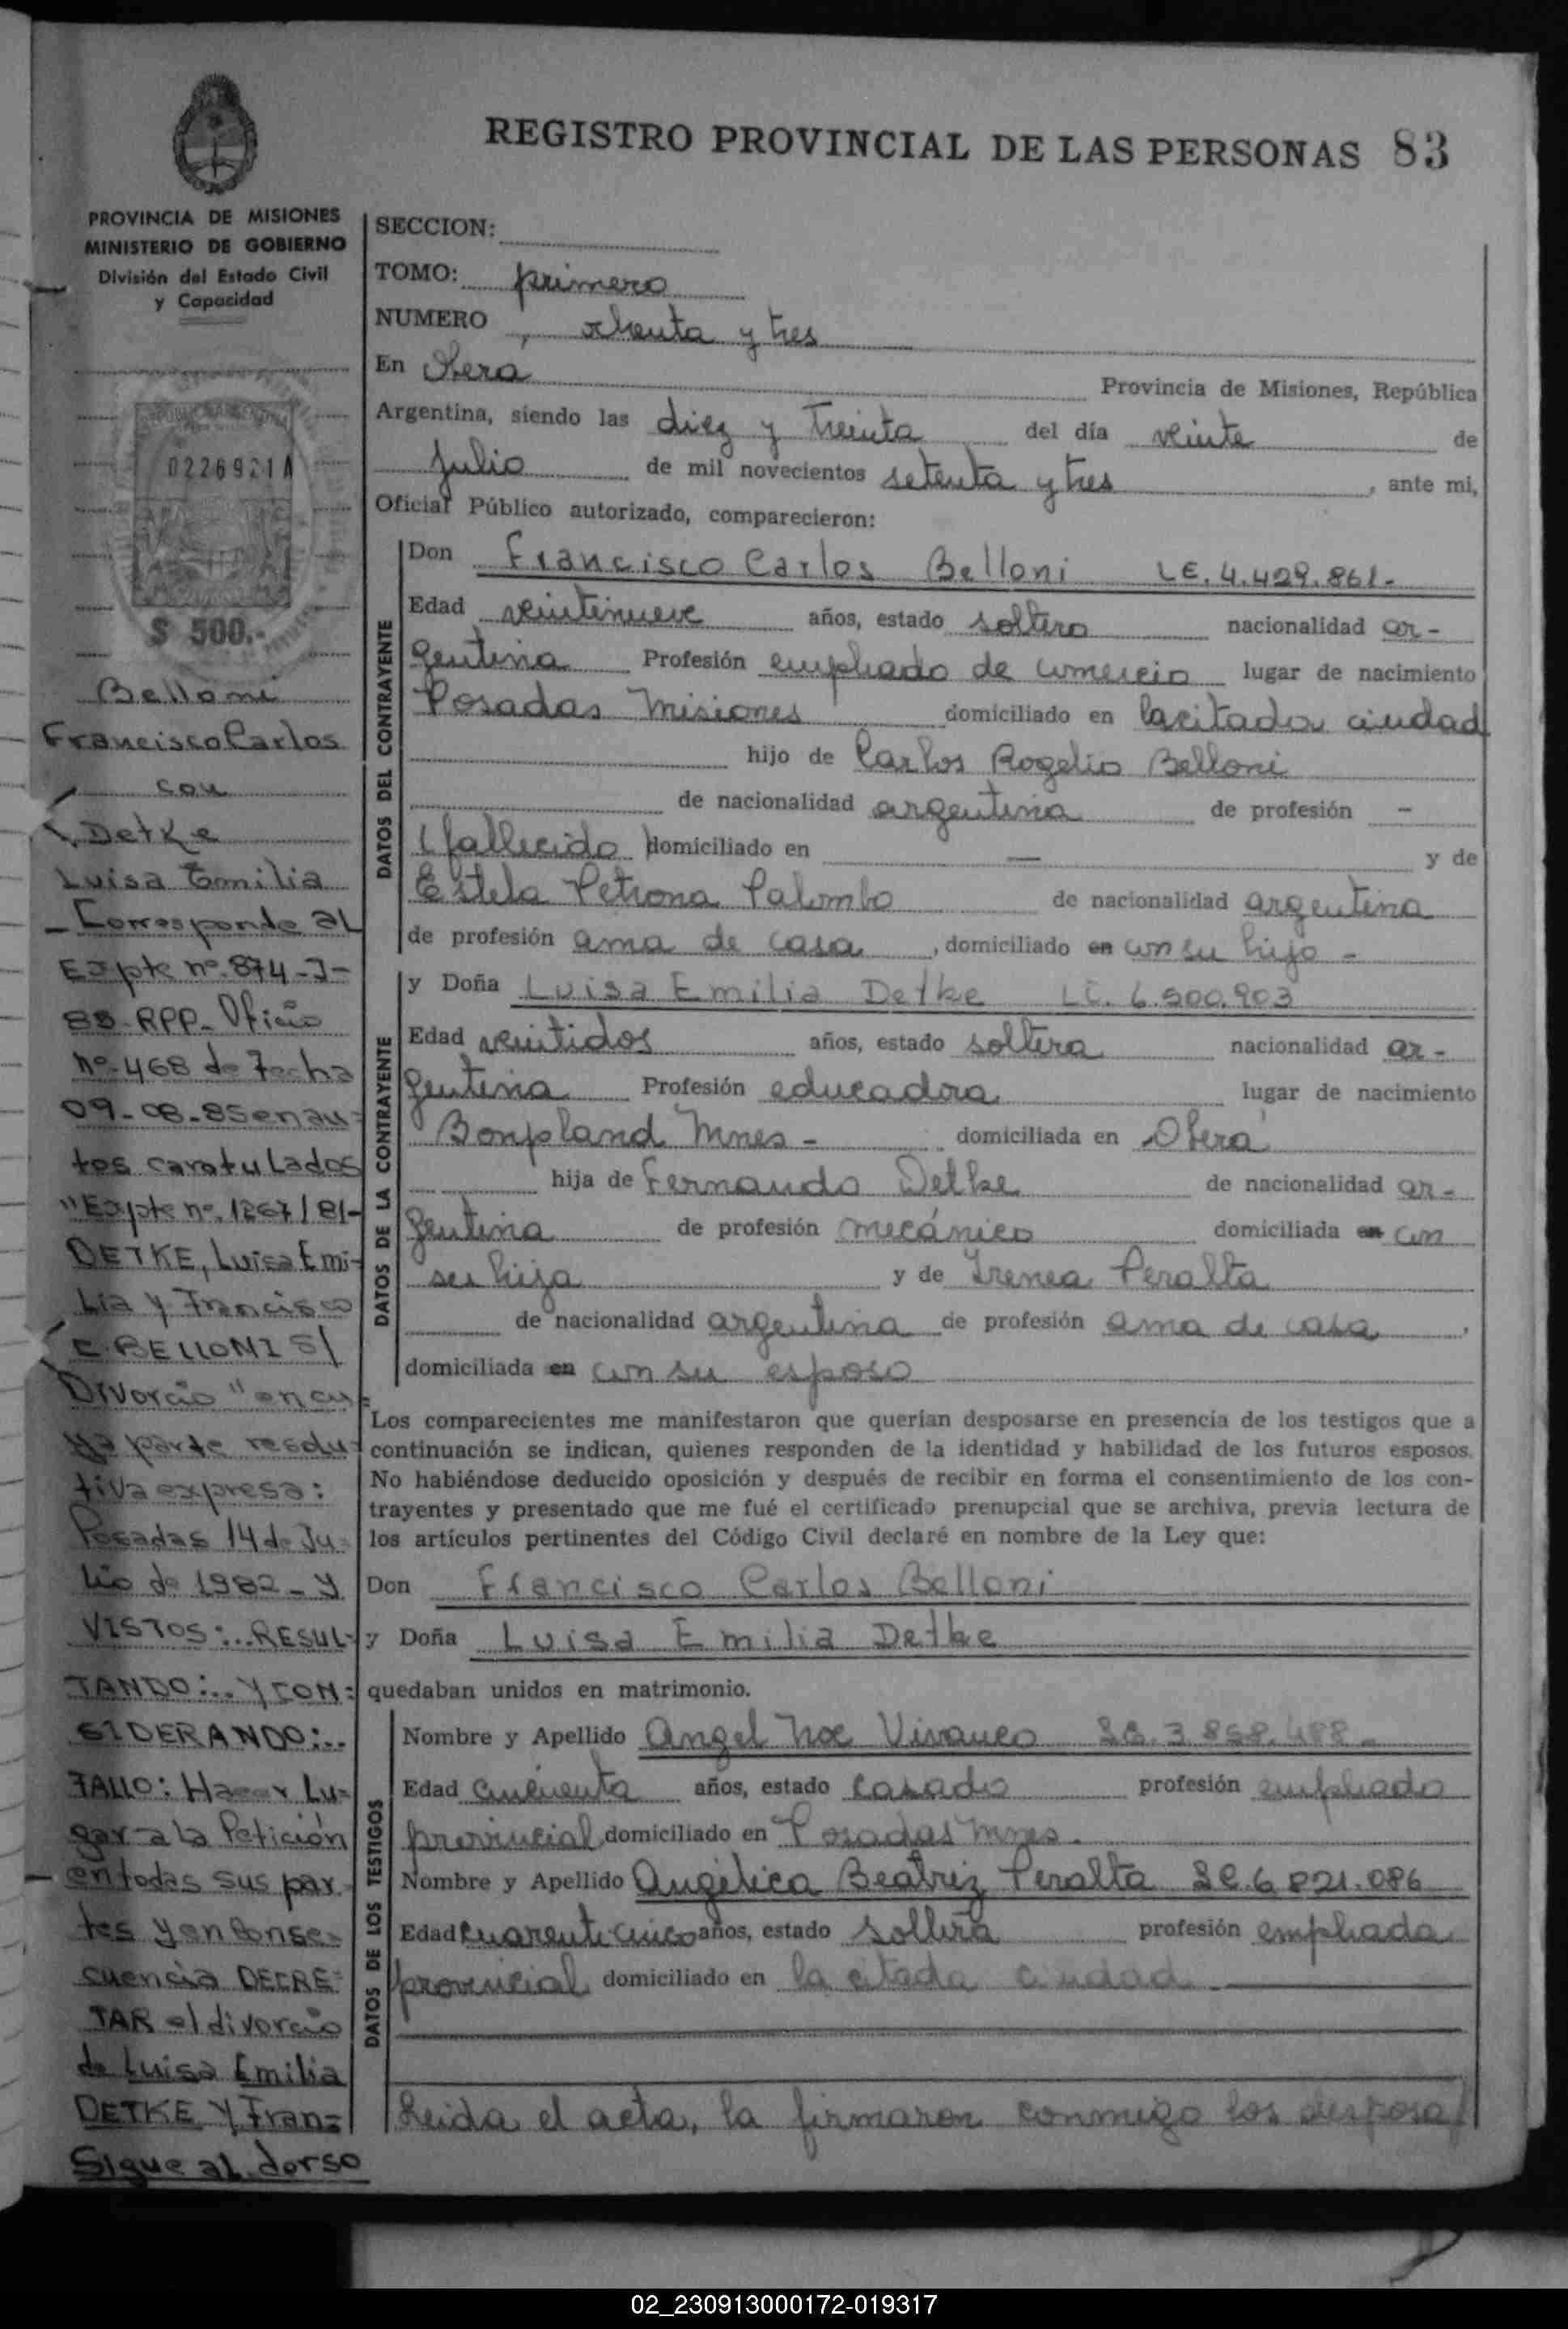 REGISTRO PROVINCIAL DE LAS PERSONAS 83
PROVINCIA DE MISIONES
MINISTERIO DE GOBIERNO
División del Estado Civil
y Capacidad
0226921A
$ 500.-
Belloni
Francisco Carlos
con
Detke
Luisa Emilia
Corresponde al
Expte nº 874-J-
85-RPP- Oficio
nº 468 de Fecha
09-08-85 en au-
tos caratulados
"Expte nº 1267/81-
DETKE, Luisa Emi-
lia y Francisco
C. BELLONI S/
Divorcio" en cu-
ya parte resolu-
tiva expresa:
Posadas 14 de Ju-
lio de 1982- y
VISTOS:.. RESUL-
TANDO:.. y CON-
SIDERANDO:..
FALLO: Hacer Lu-
gar a la Petición
en todas sus par-
tes y en Conse-
cuencia DECRE-
TAR el divorcio
de Luisa Emilia
DETKE y Fran-
Sigue al dorso
SECCION:
TOMO: primero
NUMERO ochenta y tres
En Oberá Provincia de Misiones, República
Argentina, siendo las diez y treinta del día veinte de
Julio de mil novecientos setenta y tres, ante mi,
Oficial Público autorizado, comparecieron:
DATOS DEL CONTRAYENTE
Don Francisco Carlos Belloni LE. 4.429.861.-
Edad veintinueve años, estado soltero nacionalidad ar-
gentina Profesión empleado de comercio lugar de nacimiento
Posadas Misiones domiciliado en la citada ciudad
hijo de Carlos Rogelio Belloni
de nacionalidad argentina de profesión -
(fallecido domiciliado en — y de
Estela Petrona Palombo de nacionalidad argentina
de profesión ama de casa, domiciliado en con su hijo -
DATOS DE LA CONTRAYENTE
y Doña Luisa Emilia Detke LC. 6.500.903
Edad veintidos años, estado soltera nacionalidad ar-
gentina Profesión educadora lugar de nacimiento
Bonpland Mnes - domiciliada en Oberá
hija de Fernando Detke de nacionalidad ar-
gentina de profesión mecánico domiciliada en con
su hija y de Irenea Peralta
de nacionalidad argentina de profesión ama de casa,
domiciliada en con su esposo
Los comparecientes me manifestaron que querían desposarse en presencia de los testigos que a
continuación se indican, quienes responden de la identidad y habilidad de los futuros esposos.
No habiéndose deducido oposición y después de recibir en forma el consentimiento de los con-
trayentes y presentado que me fué el certificado prenupcial que se archiva, previa lectura de
los artículos pertinentes del Código Civil declaré en nombre de la Ley que:
Don Francisco Carlos Belloni
y Doña Luisa Emilia Detke
quedaban unidos en matrimonio.
DATOS DE LOS TESTIGOS
Nombre y Apellido Angel Noe Vivanco 3.858.488.-
Edad cincuenta años, estado casado profesión empleado
provincial domiciliado en Posadas Mnes.
Nombre y Apellido Angélica Beatriz Peralta 6.821.086
Edad cuarenticinco años, estado soltera profesión empleada
provincial domiciliado en la citada ciudad.
Leida el acta, la firmaron conmigo los desposa/
02_230913000172-019317